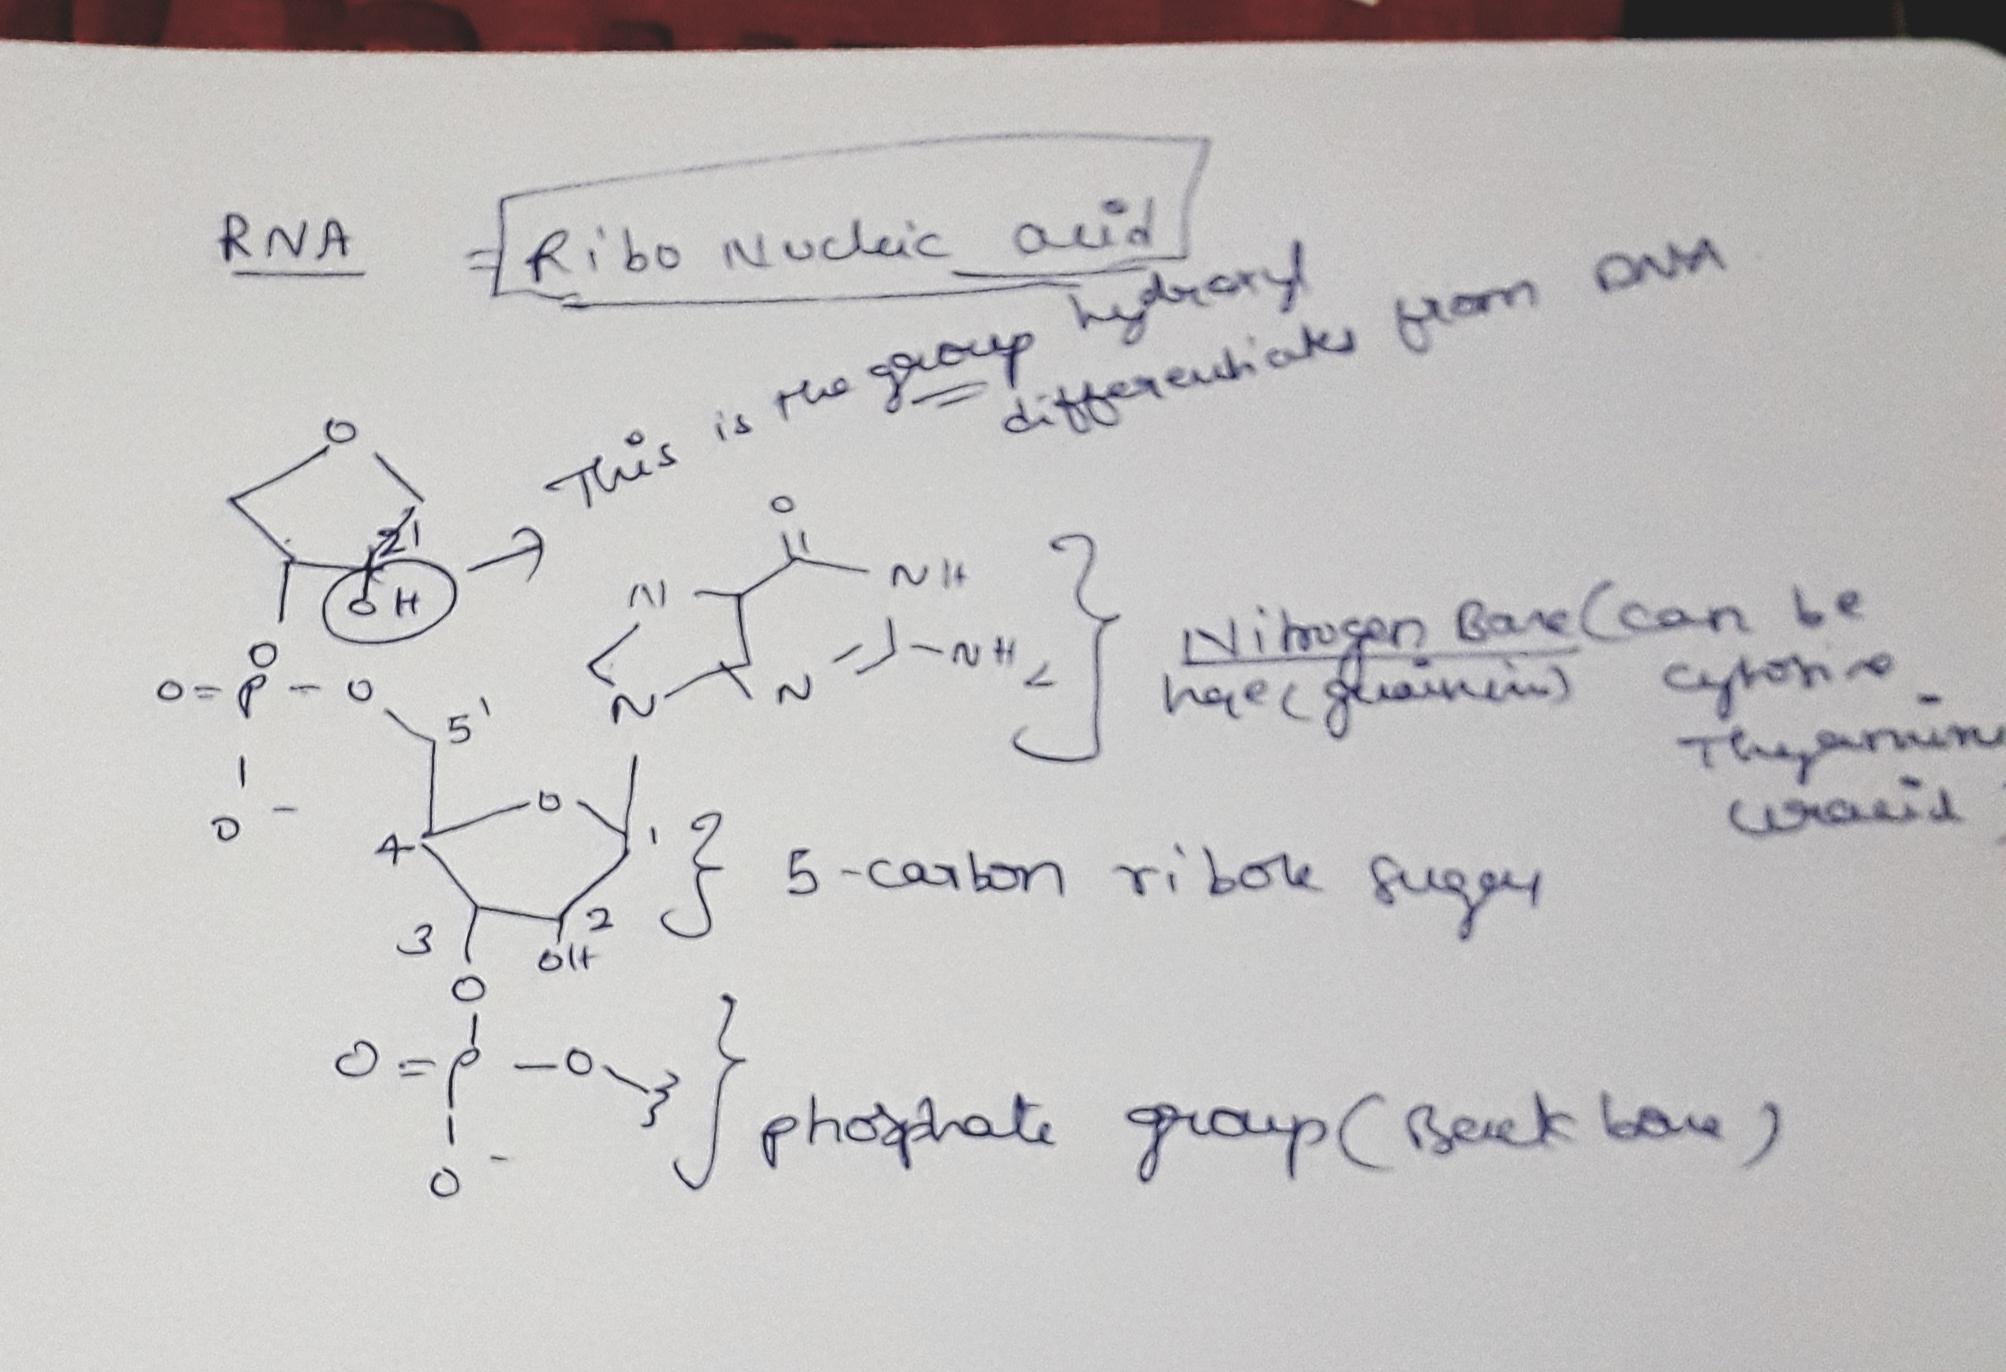 RNA = Ribo Nucleic acid
This is the group hydroxyl
differentiates from DNA
O
2'
OH
O
N
NH
O
O=P-O
N
N
NH2
5'
Nitrogen Base (can be
cytosine
O-
O
4
1
5-carbon ribose sugar
3
2
OH
O
O=P-O
phosphate group (Back bone)
O-